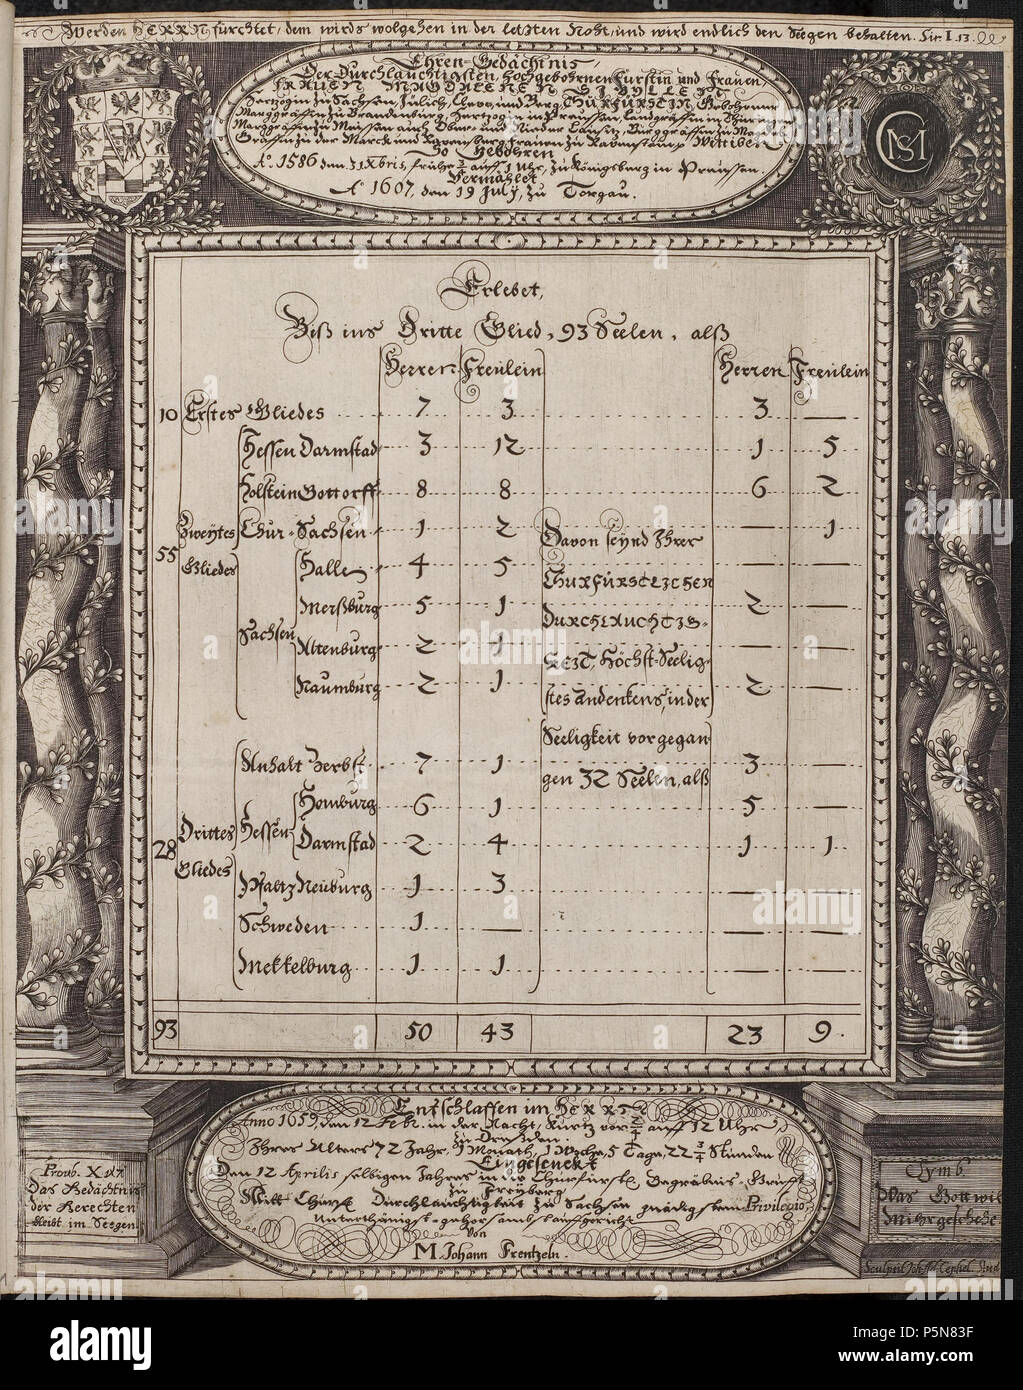 Werden HERRN fürchtet, dem wirds wolgehen in der letzten Noht, und wird endlich den Seegen behalten. Sir. I. 13.
Ehren-Gedächtnis,
Der Durchlauchtigsten, Hochgebohrnen Fürstin und Frauen,
FRAUEN MAGDALENEN SIBYLLEN
Hertzogin zu Sachsen, Jülich, Cleve, und Berg, CHURFÜRSTIN, Gebohrnen
Marggräffin zu Brandenburg, Hertzogin in Preussen, Landgräffin in Thüringen
Marggräffin zu Meissen auch Ober- und Nieder Lausitz, Burggräffin zu
Gräffin zu der Marck und Ravensburg, Frauen zu Ravenstein, Wittiben
So Gebohren
Aº. 1586 den 31 Xbris, frühe auff 7 uhr, zu Königsberg in Preussen.
Vermählet
Aº 1607, den 19 July, zu Torgau.
Erlebet,
Biß ins Dritte Glied, 93 Seelen, alß
Herren Freulein Herren Freulein
10 Erstes Gliedes 7 3 3 —
Hessen Darmstad 3 12 1 5
Holstein Gottorff 8 8 6 2
Zweytes Chur-Sachsen 1 2 — 1
Davon seynd Ihrer
55 Gliedes Halle 4 5 CHURFÜRSTLICHEN — —
Merßburg 5 1 DURCHLAUCHTIG- 2 —
Sachsen Altenburg 2 1 — —
KEIT, Höchst-Seelig-
Naumburg 2 1 stes Andenkens, in der 2 —
Seeligkeit vorgegan
Anhalt Zerbst 7 1 gen 32 Seelen, alß 3 —
Homburg 6 1 5 —
28 Drittes Hessen Darmstad 2 4 1 1
Gliedes Pfaltz Neuburg 1 3 — —
Schweden 1 — — —
Mekkelburg 1 1 — —
93 50 43 23 9.
Entschlaffen im HERRN
Anno 1659, den 12 Febr. in der Nacht, kurtz vor auff 12 Uhr
zu Dreßden.
Ihres Alters 72 Jahr, 1 Monath, 1 Woche, 5 Tage, 22 3/4 Stunden
Eingesenckt
Den 12 Aprilis selbigen Jahres in der Churfürstl. Begräbnis-Grufft
zu Freyberg
Mitt Churf. Durchlauchtigkeit zu Sachsen gnädigstem Privilegio,
Unterthänigst-gehorsambst auffgericht
Von
M. Johann Frentzeln.
Prov. X. v. 7
Das Gedächtnis
der Gerechten
bleibt im Seegen
Symb.
Was Gott wil
Mihr geschehe
alamy
Image ID: P5N83F
www.alamy.com